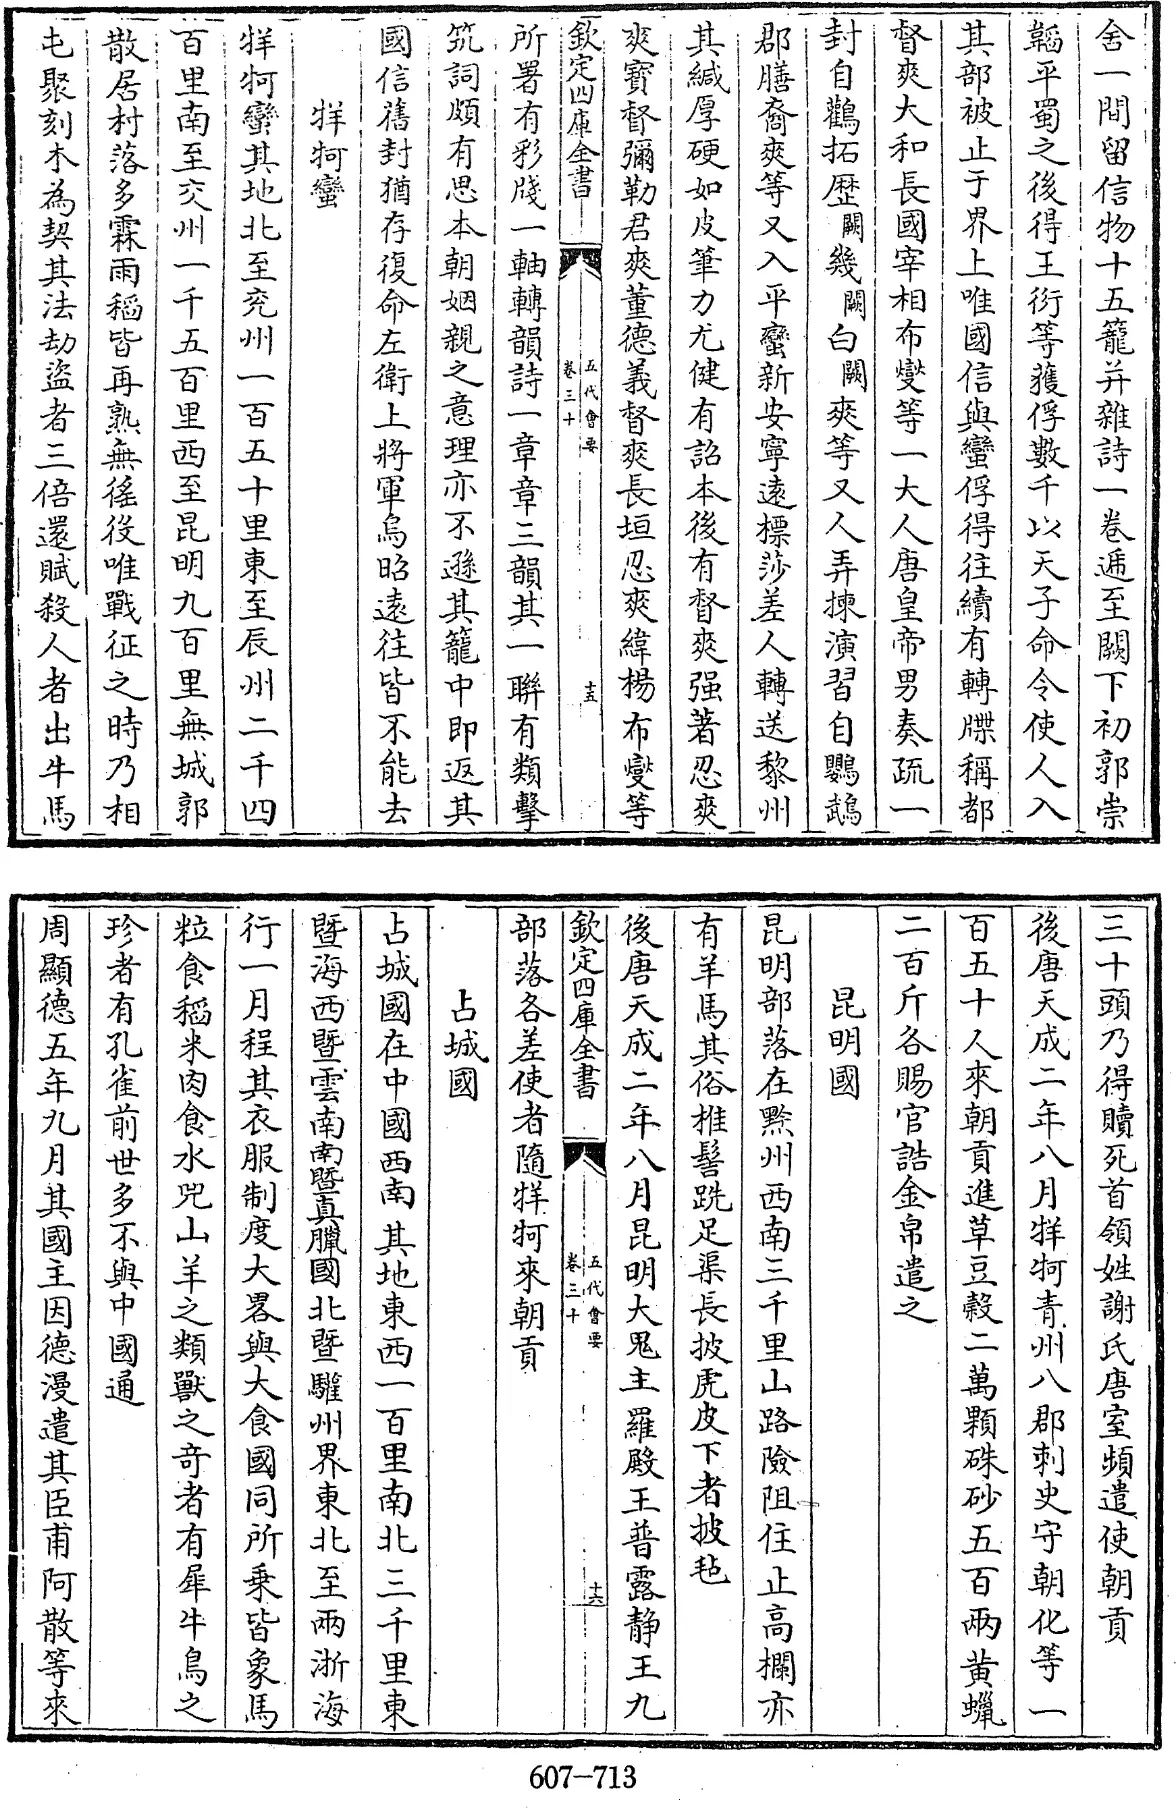 舍一間留信物十五籠并雜詩一卷遞至闕下初郭崇
韜平蜀之後得王衍等獲俘數千以天子命令使人入
其部被止于界上唯國信與蠻俘得往續有轉牒稱都
督爽大和長國宰相布燮等一大人唐皇帝男奏疏一
封自鸛拓歴闕幾闕白闕爽等又人弄揀演習自鸚鵡
郡膳裔爽等又入平蠻新安寧遠標莎差人轉送黎州
其緘厚硬如皮筆力尤健有詔本後有督爽强著忍爽
爽寶督彌勒君爽董德義督爽長垣忍爽緯楊布燮等
欽定四庫全書 五代會要 卷三十 十五
所署有彩牋一軸轉韻詩一章章三韻其一聯有類擊
筑詞頗有思本朝姻親之意理亦不遜其籠中即返其
國信舊封猶存復命左衛上將軍烏昭遠往皆不能去
牂牁蠻
牂牁蠻其地北至兖州一百五十里東至辰州二千四
百里南至交州一千五百里西至昆明九百里無城郭
散居村落多霖雨稻皆再熟無徭役唯戰征之時乃相
屯聚刻木為契其法劫盜者三倍還贓殺人者出牛馬
三十頭乃得贖死首領姓謝氏唐室頻遣使朝貢
後唐天成二年八月牂牁青州八郡刺史守朝化等一
百五十人來朝貢進草豆蔻二萬顆硃砂五百兩黃蠟
二百斤各賜官誥金帛遣之
昆明國
昆明部落在黔州西南三千里山路險阻住止高欄亦
有羊馬其俗椎髻跣足渠長披虎皮下者披毡
後唐天成二年八月昆明大鬼主羅殿王普露静王九
欽定四庫全書 五代會要 卷三十 十六
部落各差使者隨牂牁來朝貢
占城國
占城國在中國西南其地東西一百里南北三千里東
暨海西暨雲南南暨真臘國北暨驩州界東北至兩浙海
行一月程其衣服制度大畧與大食國同所乗皆象馬
粒食稻米肉食水兕山羊之類獸之奇者有犀牛鳥之
珍者有孔雀前世多不與中國通
周顯德五年九月其國主因德漫遣其臣甫阿散等來
607-713